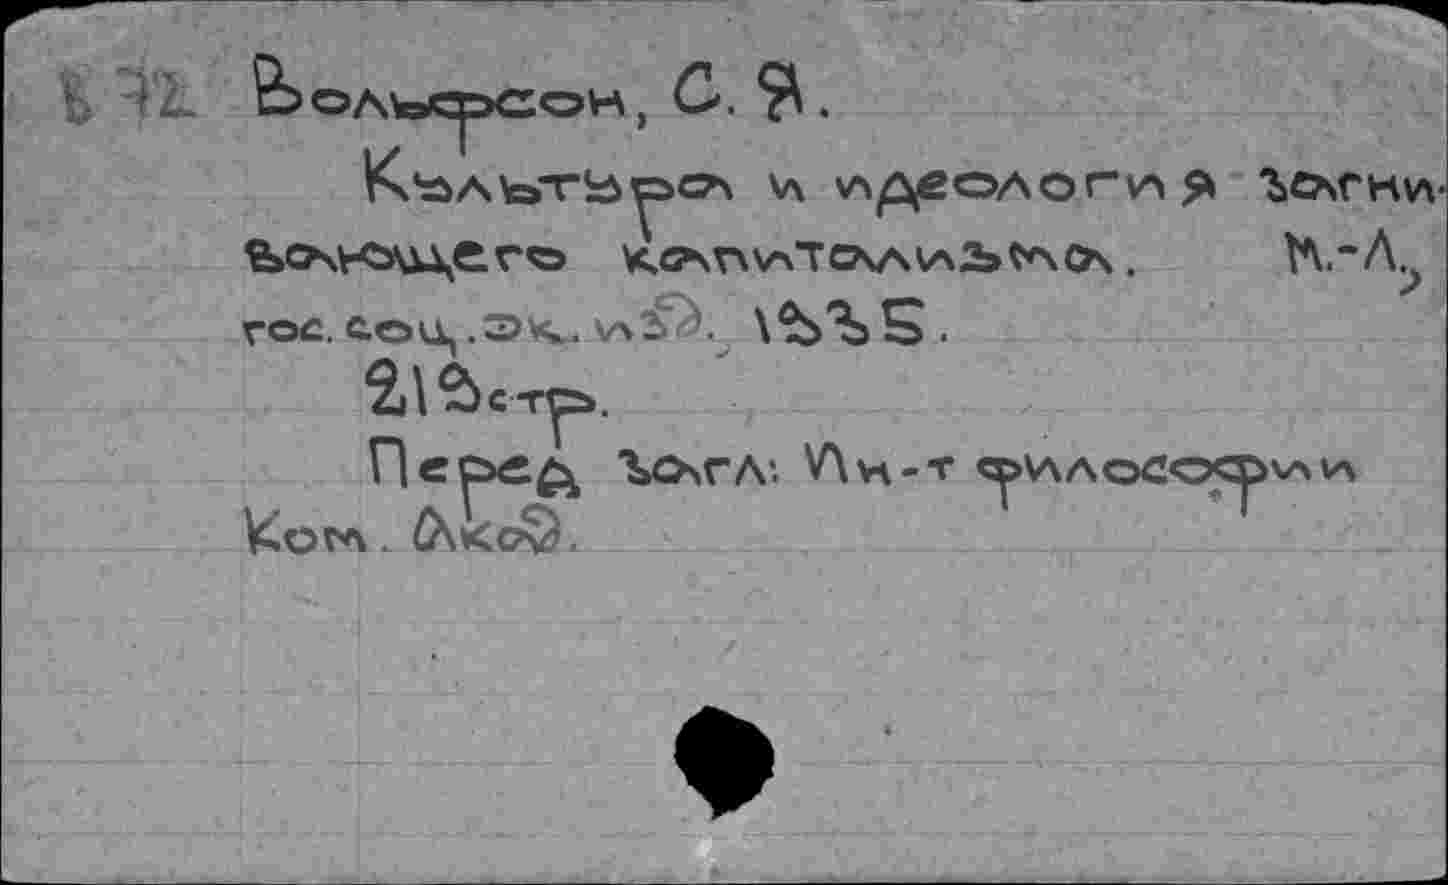 В 72 Вольфсон, С. Я.
Культура и идеология загни-
вающего капитализма. М.-Л.,
гос. соц. эк. изд. 1935.
212стр.
Перед загл: Ин-т философии
Ком. Акад.